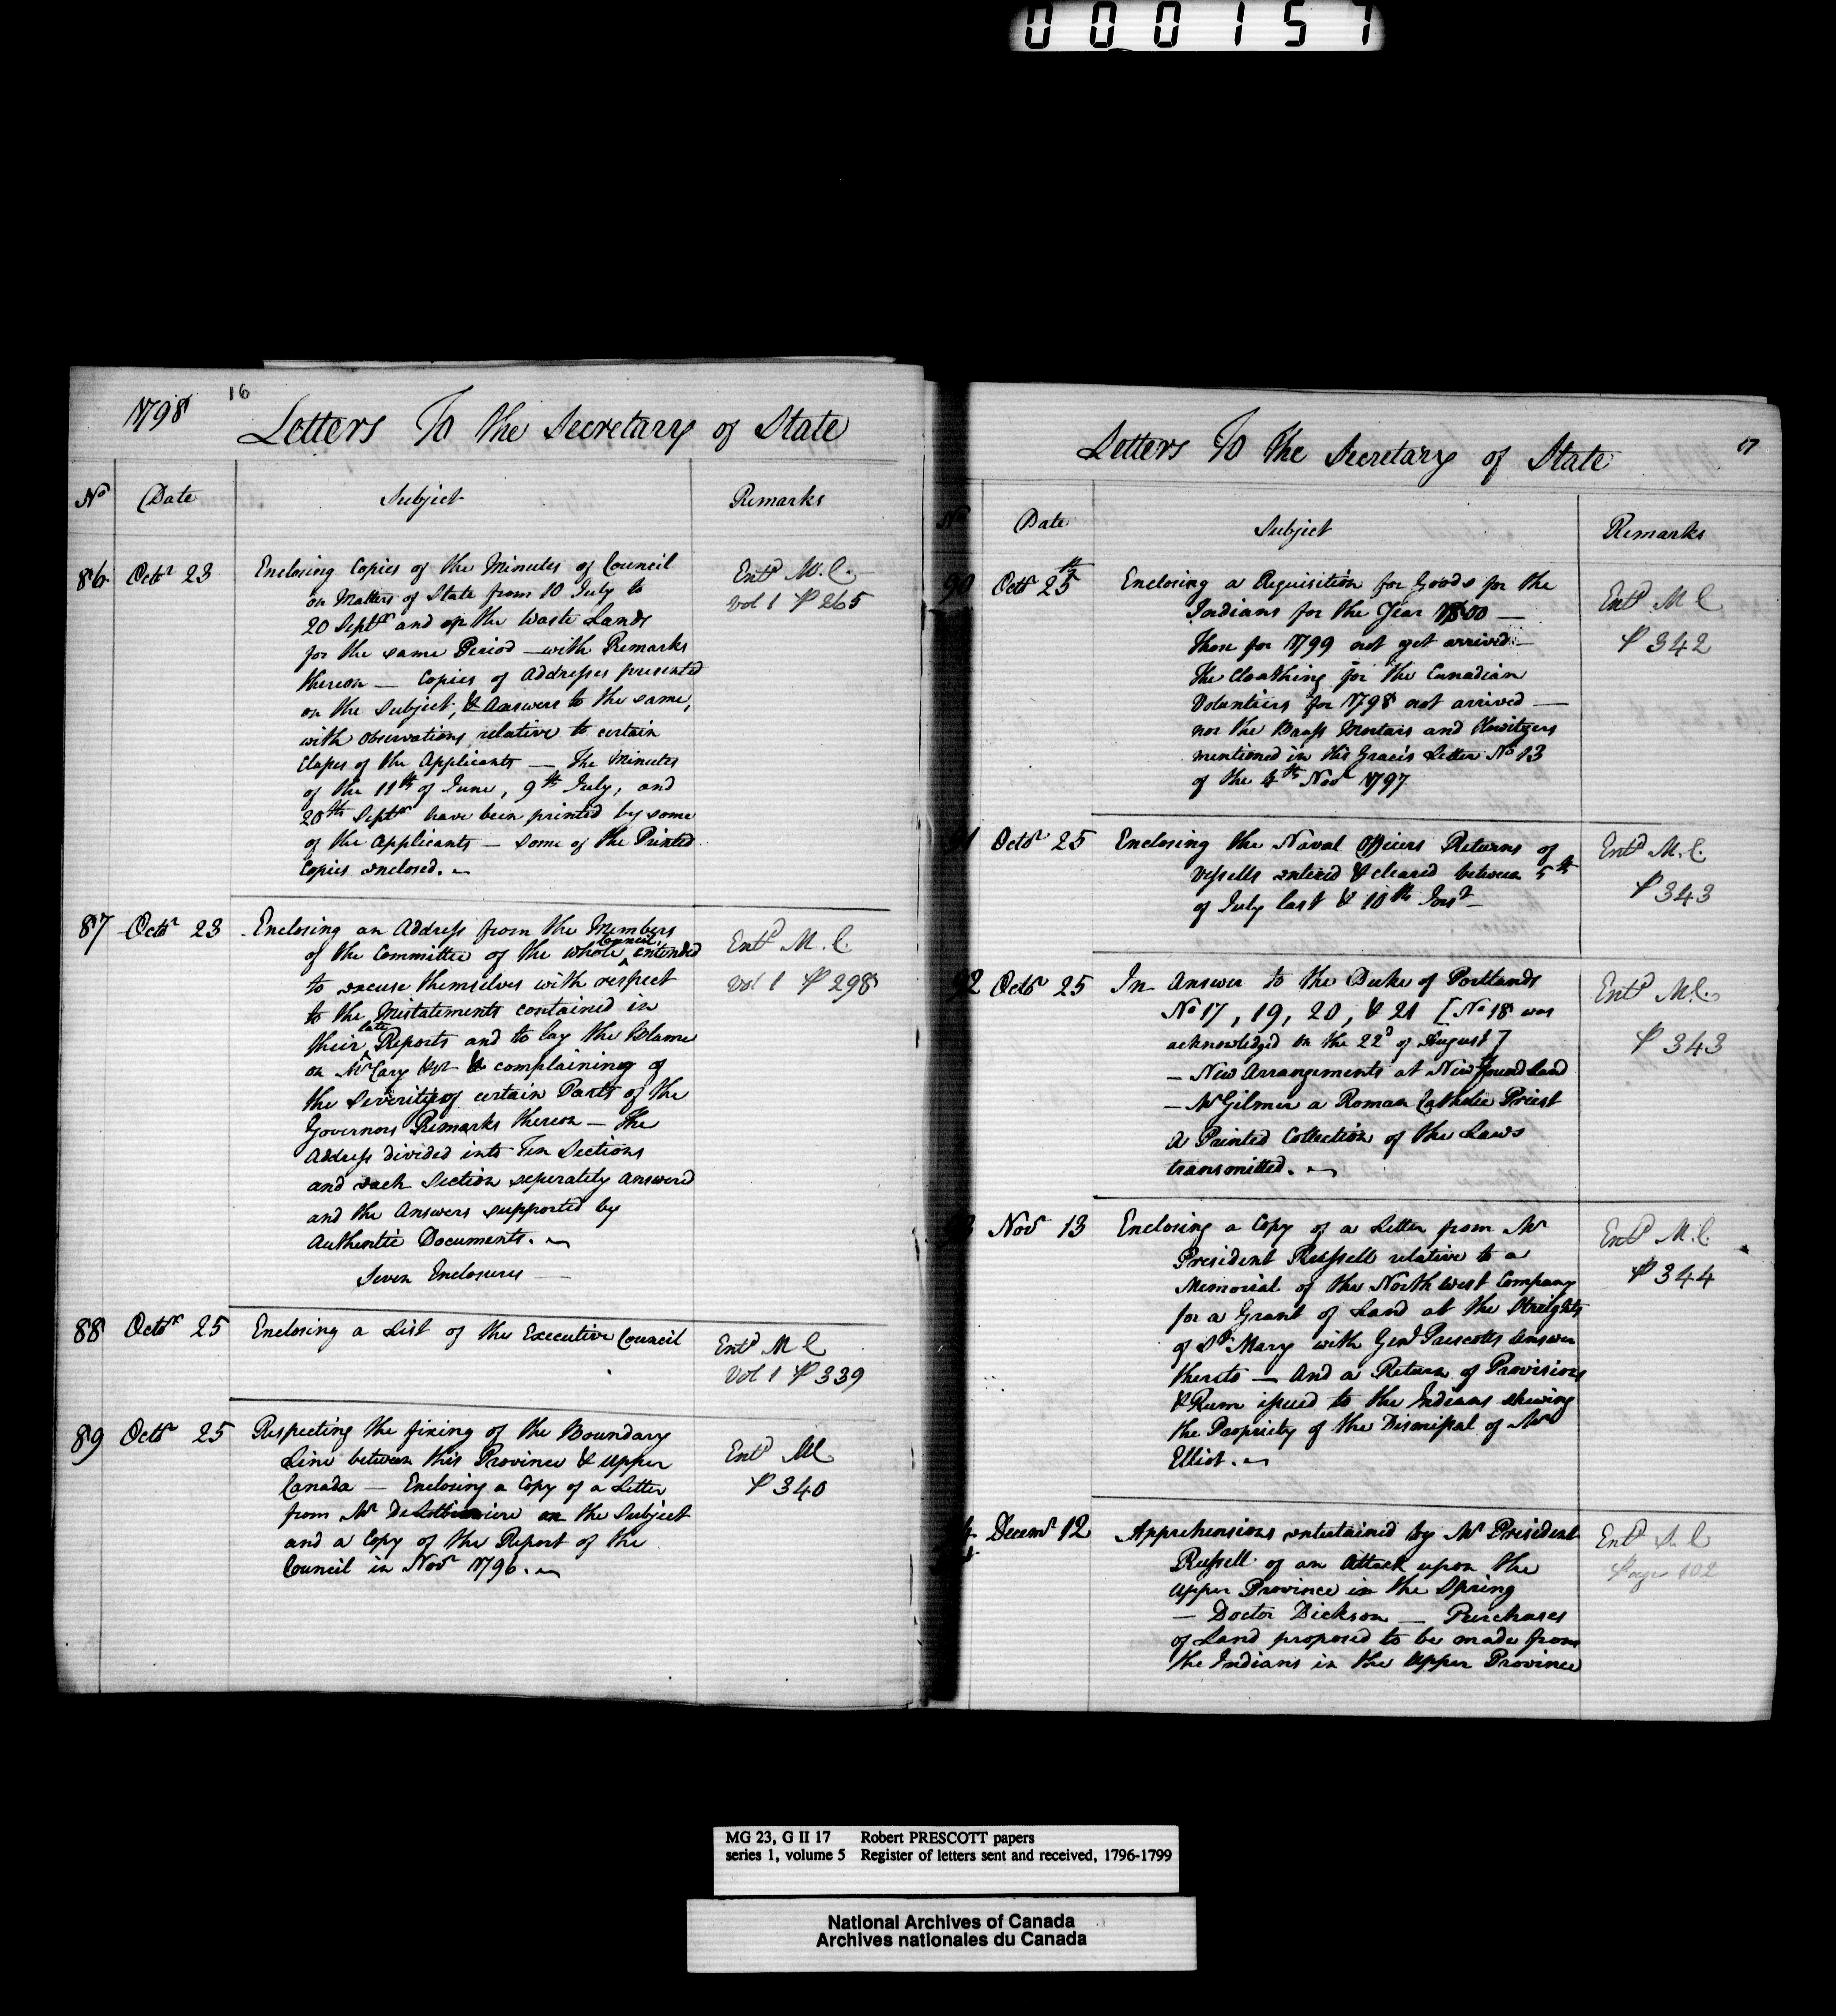 000157
1798
16
Letters To the Secretary of State
No Date Subject Remarks
86 Octr 23 Enclosing Copies of the Minutes of Council Entd M.C.
on Matters of State from 10 July to Vol 1 P 265
20 Septr and on the Waste Lands
for the same Period — with Remarks
thereon — Copies of Addresses presented
on the Subject, & Answers to the same,
with Observations relative to certain
Classes of the Applicants — The Minutes
of the 11th of June, 9th July, and
20th Septr have been printed by some
of the Applicants — Some of the Printed
Copies enclosed.
87 Octr 23 Enclosing an Address from the Members Entd M.C.
of the Committee of the whole Council, intended
to excuse themselves with respect Vol 1 P 298
to the Mistatements contained in
their late Reports and to lay the Blame
on Mr Cary & complaining of
the Severity of certain Parts of the
Governors Remarks thereon — The
Address divided into Ten Sections
and each Section seperately answered
and the Answers supported by
Authentic Documents.
Seven Enclosures —
88 Octor 25 Enclosing a List of the Executive Council Entd M C
Vol 1 P 339
89 Octr 25 Respecting the fixing of the Boundary Entd M
Line between this Province & Upper P 340
Canada — Enclosing a Copy of a Letter
from Mr De Lotbiniere on the Subject
and a Copy of the Report of the
Council in Novr 1796.
17
Letters To the Secretary of State
No Date Subject Remarks
90 Octr 25th Enclosing a Requisition for Goods for the Entd M C
Indians for the Year 1800 — P 342
Those for 1799 not yet arrived —
The Cloathing for the Canadian
Volunteers for 1798 not arrived —
nor the Brass Mortars and Howitzers
mentioned in His Grace's Letter No 13
of the 4th Novr 1797
91 Octr 25 Enclosing the Naval Officers Returns of Entd M.C.
Vessells entered & cleared between 5th P 343
of July last & 10th Inst
92 Octr 25 In Answer to the Duke of Portlands Entd M.C.
No 17, 19, 20, & 21 [No 18 was
acknowledged on the 22d of August] P 343
— New Arrangements at Newfoundland
— Mr Gilmer a Roman Catholic Priest
A Printed Collection of the Laws
transmitted.
93 Novr 13 Enclosing a Copy of a Letter from Mr Entd M.C.
President Russell relative to a P 344
Memorial of the North West Company
for a Grant of Land at the Streights
of St Mary with Genl Prescotts Answer
thereto — And a Return of Provisions
& Rum issued to the Indians shewing
the Propriety of the Dismissal of Mr
Elliot.
Decemr 12 Apprehensions entertained by Mr President Entd S. C
Russell of an Attack upon the Page 102
Upper Province in the Spring
— Doctor Dickson — Purchases
of Land proposed to be made from
the Indians in the Upper Province
MG 23, G II 17 Robert PRESCOTT papers
series 1, volume 5 Register of letters sent and received, 1796-1799
National Archives of Canada
Archives nationales du Canada